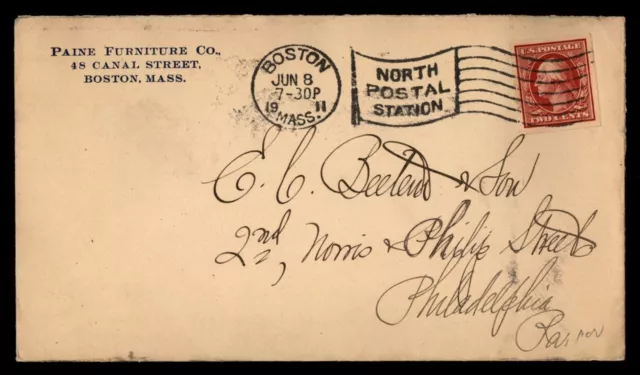 PAINE FURNITURE CO.,
48 CANAL STREET,
BOSTON, MASS.
BOSTON
JUN 8
7-30P
19 11
MASS.
NORTH
POSTAL
STATION
U.S. POSTAGE
TWO CENTS
E. C. & Son
2nd, Norris & Philip Street
Philadelphia